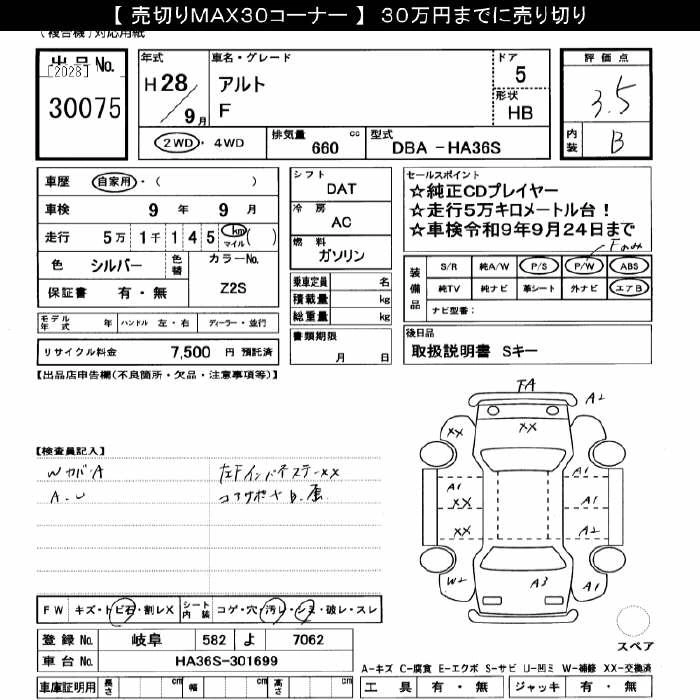 【 売切りMAX30コーナー 】 30万円までに売り切り
(複合機)対応用紙
出品No.
[2028]
30075
年式
H 28
9月
車名・グレード
アルト
F
ドア
5
形状
HB
2WD・4WD
排気量
660 cc
型式
DBA -HA36S
評価点
3.5
内装
B
車歴 自家用・( )
車検 9 年 9 月
走行 5万 1千 1 4 5 km マイル ( )
色 シルバー 色替
カラーNo.
Z2S
保証書 有・無
シフト
DAT
冷房
AC
燃料
ガソリン
乗車定員 名
積載量 kg
総重量 kg
セールスポイント
☆純正CDプレイヤー
☆走行5万キロメートル台!
☆車検令和9年9月24日まで
Fのみ
装備品
S/R 純A/W P/S P/W ABS
純TV 純ナビ 革シート 外ナビ エアB
ナビ型番:
モデル年式 年 ハンドル 左・右 ディーラー・並行
リサイクル料金 7,500 円 預託済
書類期限
月 日
後日品
取扱説明書 Sキー
【出品店申告欄(不良箇所・欠品・注意事項等)】
【検査員記入】
WカバA
A.U
左Fインパネステーxx
コアサポキB.凹
FA
A2
XX
XX
A1
XX
XX
A1
A2
W2
A3
A1
FW キズ・トビ石・割レX シート内装 コゲ・穴・汚レ・シミ・破レ・スレ
登録No. 岐阜 582 よ 7062
車台No. HA36S-301699
スペア
A-キズ C-腐食 E-エクボ S-サビ U-凹ミ W-補修 XX-交換済
車庫証明用 長さ cm 幅 cm 高さ cm
工具 有・無 ジャッキ 有・無